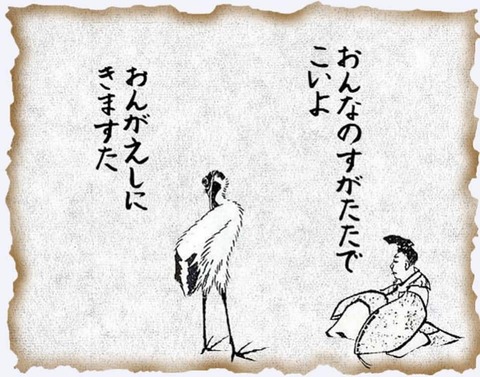 おんなのすがたたで
こいよ
おんがえしに
きますた